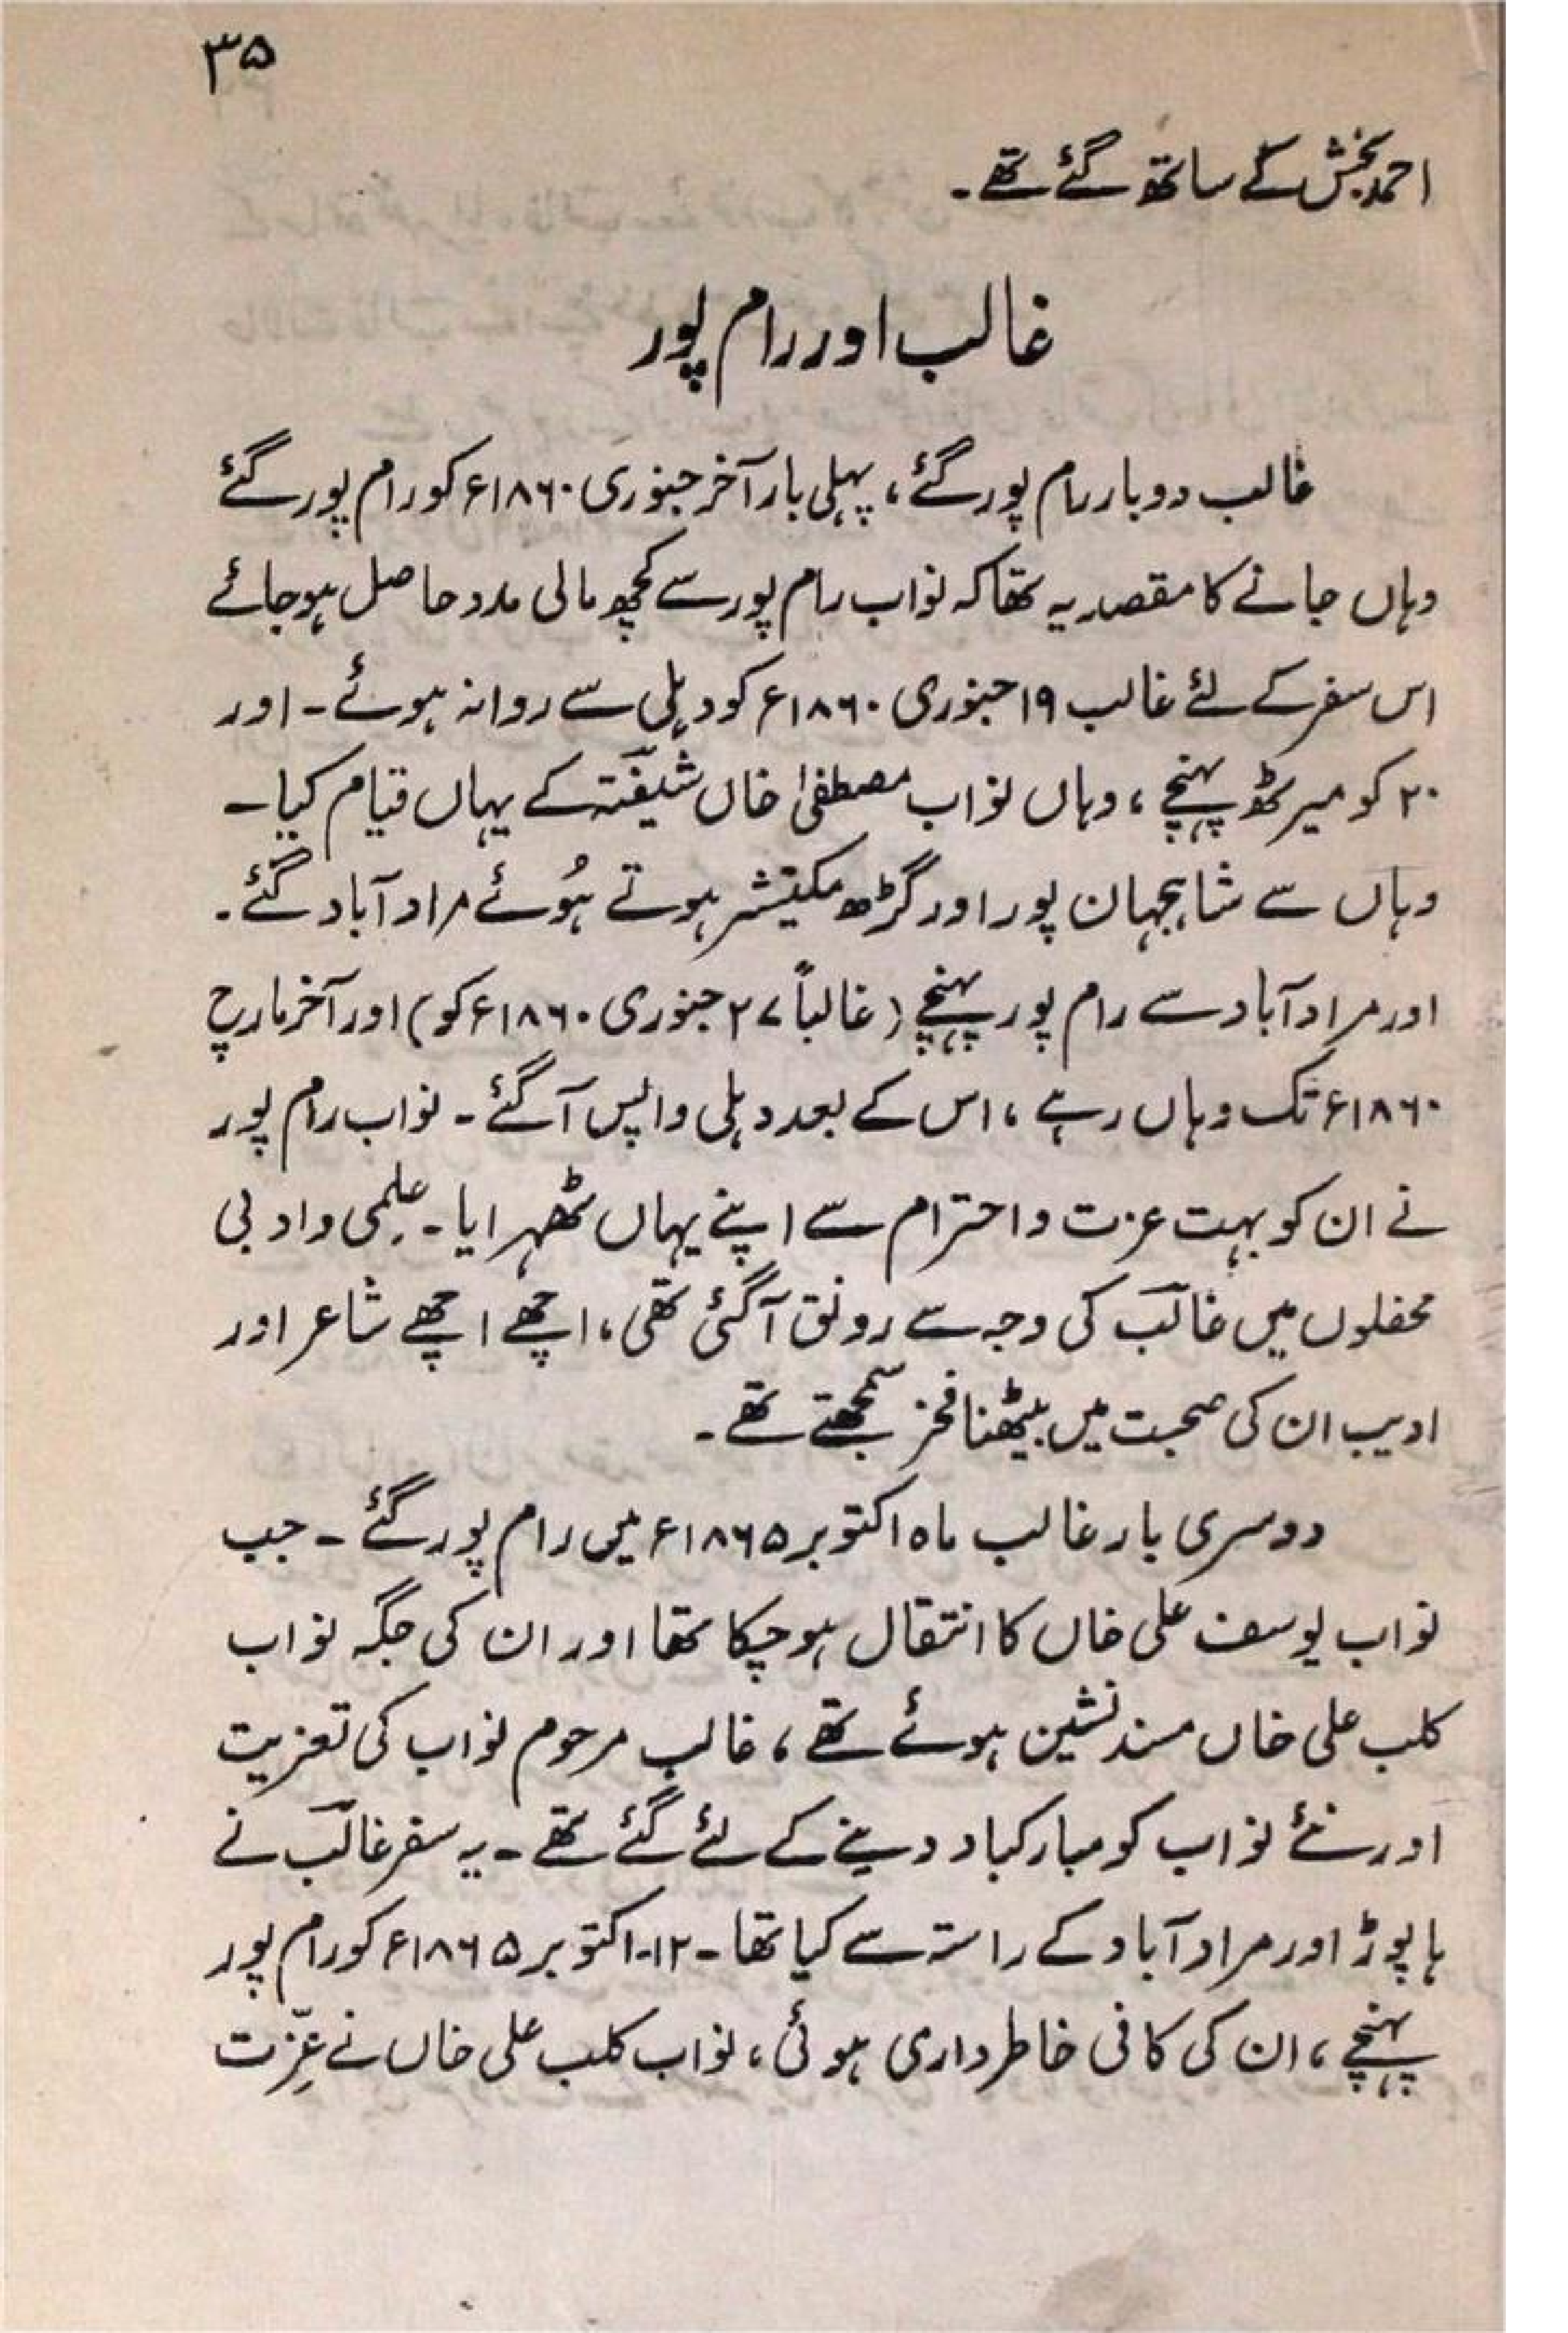 ۳۵
احمد بخش کے ساتھ گئے تھے۔
غالب اور رام پور
غالب دو بار رام پور گئے، پہلی بار آخر جنوری ۱۸۶۰ء کو رام پور گئے
وہاں جانے کا مقصد یہ تھا کہ نواب رام پور سے کچھ مالی مدد حاصل ہو جائے
اس سفر کے لئے غالب ۱۹ جنوری ۱۸۶۰ء کو دہلی سے روانہ ہوئے۔ اور
۲۰ کو میرٹھ پہنچے، وہاں نواب مصطفیٰ خاں شیفتہؔ کے یہاں قیام کیا۔
وہاں سے شاہجہان پور اور گڑھ مکتیشر ہوتے ہُوئے مراد آباد گئے۔
اور مراد آباد سے رام پور پہنچے (غالباً ۲۷ جنوری ۱۸۶۰ء کو) اور آخر مارچ
۱۸۶۰ء تک وہاں رہے، اس کے بعد دہلی واپس آ گئے۔ نواب رام پور
نے ان کو بہت عزت و احترام سے اپنے یہاں ٹھہرایا۔ عِلمی و ادبی
محفلوں میں غالبؔ کی وجہ سے رونق آ گئی تھی، اچھے اچھے شاعر اور
ادیب ان کی صحبت میں بیٹھنا فخر سمجھتے تھے۔
دوسری بار غالب ماہ اکتوبر ۱۸۶۵ء میں رام پور گئے۔ جب
نواب یوسف علی خاں کا انتقال ہو چکا تھا اور ان کی جگہ نواب
کلب علی خاں مسند نشین ہوئے تھے، غالب مرحوم نواب کی تعزیت
اور نئے نواب کو مبارکباد دینے کے لئے گئے تھے۔ یہ سفر غالبؔ نے
ہاپوڑ اور مراد آباد کے راستہ سے کیا تھا۔ ۱۲۔اکتوبر ۱۸۶۵ء کو رام پور
پہنچے، ان کی کافی خاطر داری ہوئی، نواب کلب علی خاں نے عِزّت